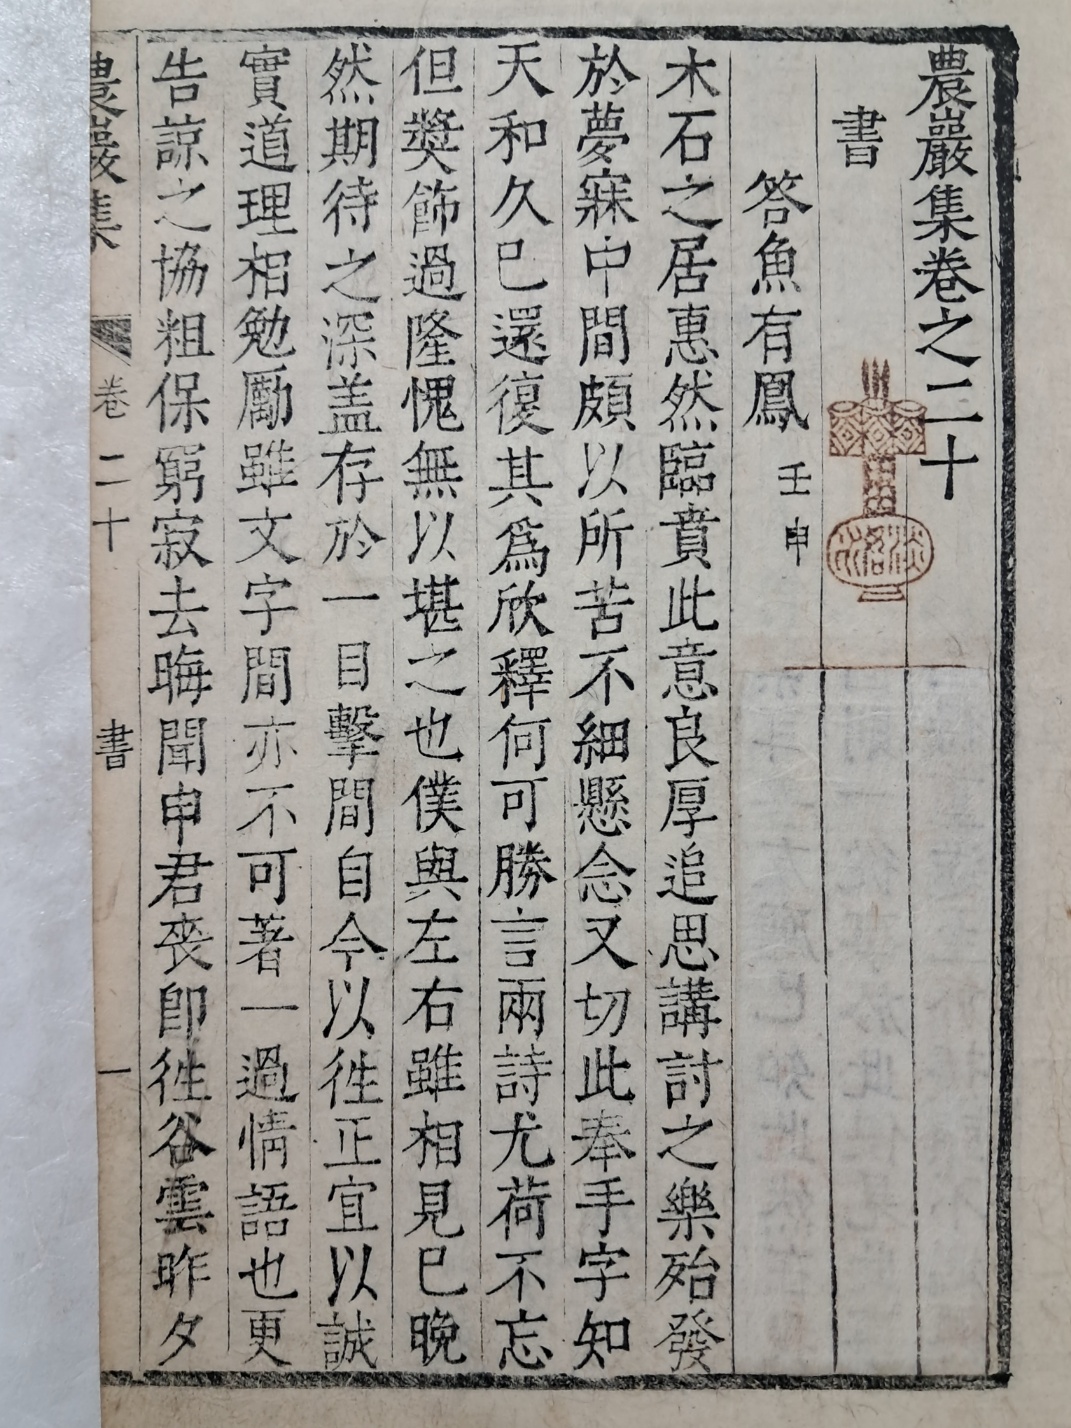 農巖集卷之二十
書
答魚有鳳 壬申
木石之居惠然臨賁此意良厚追思講討之樂殆發
於夢寐中間頗以所苦不細懸念又切此奉手字知
天和久已還復其爲欣釋何可勝言兩詩尤荷不忘
但奬飾過隆愧無以堪之也僕與左右雖相見已晚
然期待之深盖存於一目擊間自今以徃正宜以誠
實道理相勉勵雖文字間亦不可著一過情語也更
告諒之協粗保窮寂去晦聞申君喪卽徃谷雲昨夕
農巖集 卷二十 書 一